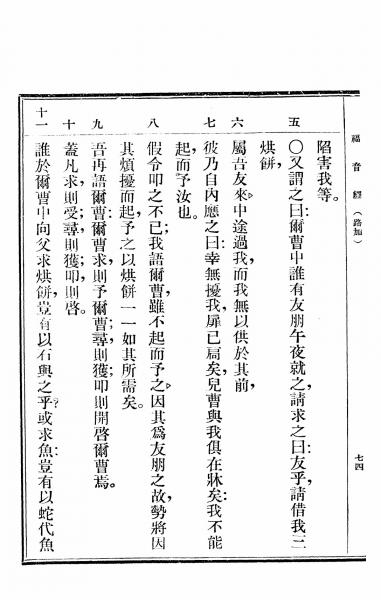 福音經（路加）
七四
陷害我等。
五 〇又謂之曰：爾曹中誰有友朋午夜就之，請求之曰：友乎，請借我三
烘餅，
六 屬吾友來，中途過我，而我無以供於其前，
七 彼乃自內應之曰：幸無擾我，扉已扃矣，兒曹與我俱在牀矣；我不能
起而予汝也。
八 假令叩之不已；我語爾曹，雖不起而予之，因其爲友朋之故，勢將因
其煩擾而起，予之以烘餅一一如其所需矣。
九 吾再語爾曹：爾曹求則予爾曹；尋則獲；叩則開啓爾曹焉。
十 蓋凡求則受；尋則獲；叩則啓。
十一 誰於爾曹中向父求烘餅，豈有以石與之乎？或求魚：豈有以蛇代魚